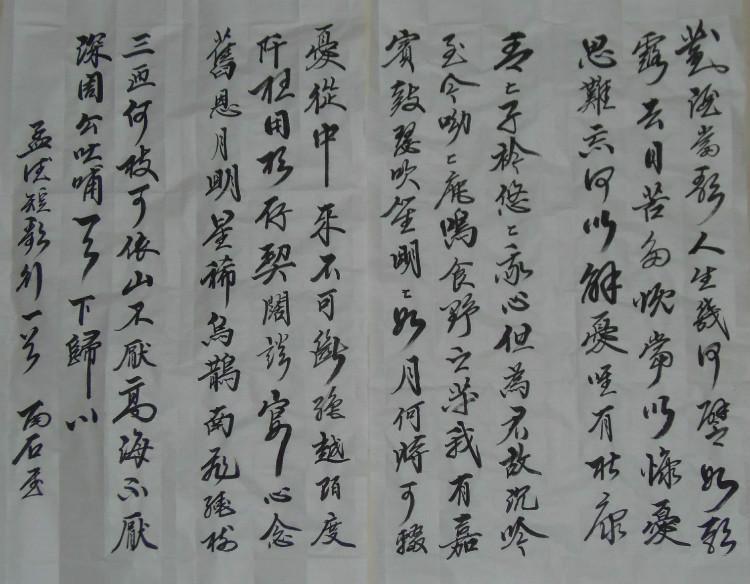 對酒當歌人生幾何譬如朝
露去日苦多慨當以慷憂
思難忘何以解憂唯有杜康
青〻子衿悠〻我心但為君故沉吟
至今呦〻鹿鳴食野之苹我有嘉
賓鼓瑟吹笙明〻如月何時可輟
憂從中來不可斷絕越陌度
阡枉用相存契闊談宴心念
舊恩月明星稀烏鵲南飛繞樹
三匝何枝可依山不厭高海不厭
深周公吐哺天下歸心
孟德短歌行一首